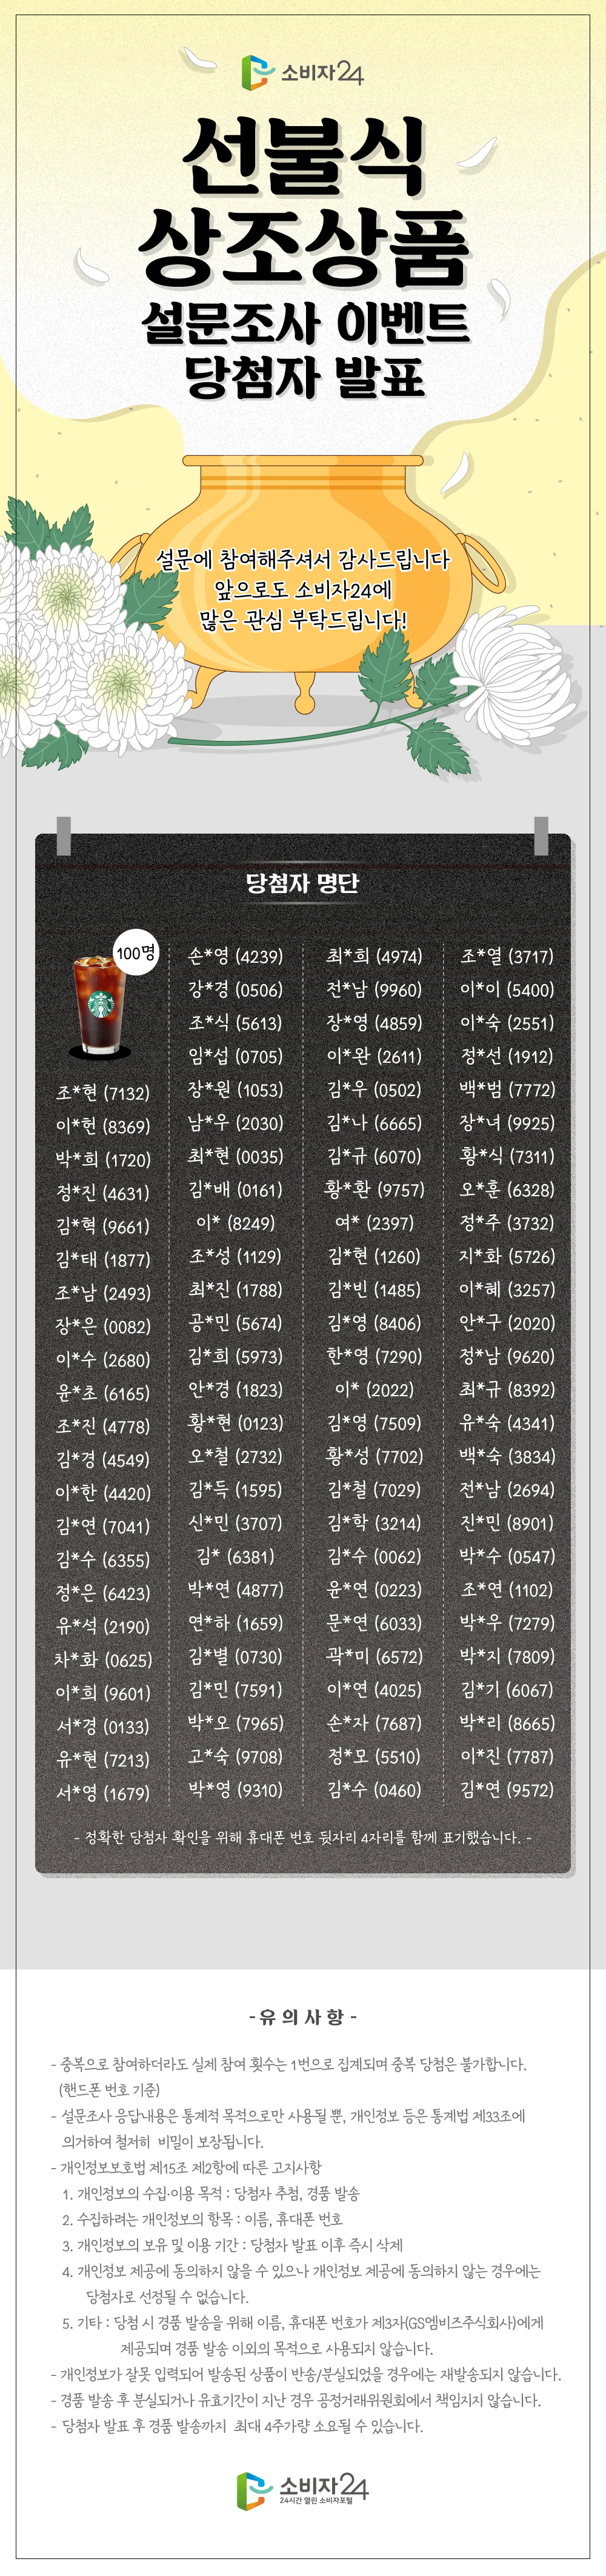 소비자24
선불식
상조상품
설문조사 이벤트
당첨자 발표
설문에 참여해주셔서 감사드립니다
앞으로도 소비자24에
많은 관심 부탁드립니다!
당첨자 명단
100명
조*현 (7132)
이*헌 (8369)
박*희 (1720)
정*진 (4631)
김*혁 (9661)
김*태 (1877)
조*남 (2493)
장*은 (0082)
이*수 (2680)
윤*초 (6165)
조*진 (4778)
김*경 (4549)
이*한 (4420)
김*연 (7041)
김*수 (6355)
정*은 (6423)
유*석 (2190)
차*화 (0625)
이*희 (9601)
서*경 (0133)
유*현 (7213)
서*영 (1679)
손*영 (4239)
강*경 (0506)
조*식 (5613)
임*섭 (0705)
장*원 (1053)
남*우 (2030)
최*현 (0035)
김*배 (0161)
이* (8249)
조*성 (1129)
최*진 (1788)
공*민 (5674)
김*희 (5973)
안*경 (1823)
황*현 (0123)
오*철 (2732)
김*득 (1595)
신*민 (3707)
김* (6381)
박*연 (4877)
연*하 (1659)
김*별 (0730)
김*민 (7591)
박*오 (7965)
고*숙 (9708)
박*영 (9310)
최*희 (4974)
전*남 (9960)
장*영 (4859)
이*완 (2611)
김*우 (0502)
김*나 (6665)
김*규 (6070)
황*환 (9757)
여* (2397)
김*현 (1260)
김*빈 (1485)
김*영 (8406)
한*영 (7290)
이* (2022)
김*영 (7509)
황*성 (7702)
김*철 (7029)
김*학 (3214)
김*수 (0062)
윤*연 (0223)
문*연 (6033)
곽*미 (6572)
이*연 (4025)
손*자 (7687)
정*모 (5510)
김*수 (0460)
조*열 (3717)
이*이 (5400)
이*숙 (2551)
정*선 (1912)
백*범 (7772)
장*녀 (9925)
황*식 (7311)
오*훈 (6328)
정*주 (3732)
지*화 (5726)
이*혜 (3257)
안*구 (2020)
정*남 (9620)
최*규 (8392)
유*숙 (4341)
백*숙 (3834)
전*남 (2694)
진*민 (8901)
박*수 (0547)
조*연 (1102)
박*우 (7279)
박*지 (7809)
김*기 (6067)
박*리 (8665)
이*진 (7787)
김*연 (9572)
- 정확한 당첨자 확인을 위해 휴대폰 번호 뒷자리 4자리를 함께 표기했습니다. -
- 유 의 사 항 -
- 중복으로 참여하더라도 실제 참여 횟수는 1번으로 집계되며 중복 당첨은 불가합니다.
(핸드폰 번호 기준)
- 설문조사 응답내용은 통계적 목적으로만 사용될 뿐, 개인정보 등은 통계법 제33조에
의거하여 철저히 비밀이 보장됩니다.
- 개인정보보호법 제15조 제2항에 따른 고지사항
1. 개인정보의 수집·이용 목적 : 당첨자 추첨, 경품 발송
2. 수집하려는 개인정보의 항목 : 이름, 휴대폰 번호
3. 개인정보의 보유 및 이용 기간 : 당첨자 발표 이후 즉시 삭제
4. 개인정보 제공에 동의하지 않을 수 있으나 개인정보 제공에 동의하지 않는 경우에는
당첨자로 선정될 수 없습니다.
5. 기타 : 당첨 시 경품 발송을 위해 이름, 휴대폰 번호가 제3자(GS엠비즈주식회사)에게
제공되며 경품 발송 이외의 목적으로 사용되지 않습니다.
- 개인정보가 잘못 입력되어 발송된 상품이 반송/분실되었을 경우에는 재발송되지 않습니다.
- 경품 발송 후 분실되거나 유효기간이 지난 경우 공정거래위원회에서 책임지지 않습니다.
- 당첨자 발표 후 경품 발송까지 최대 4주가량 소요될 수 있습니다.
소비자24
24시간 열린 소비자포털